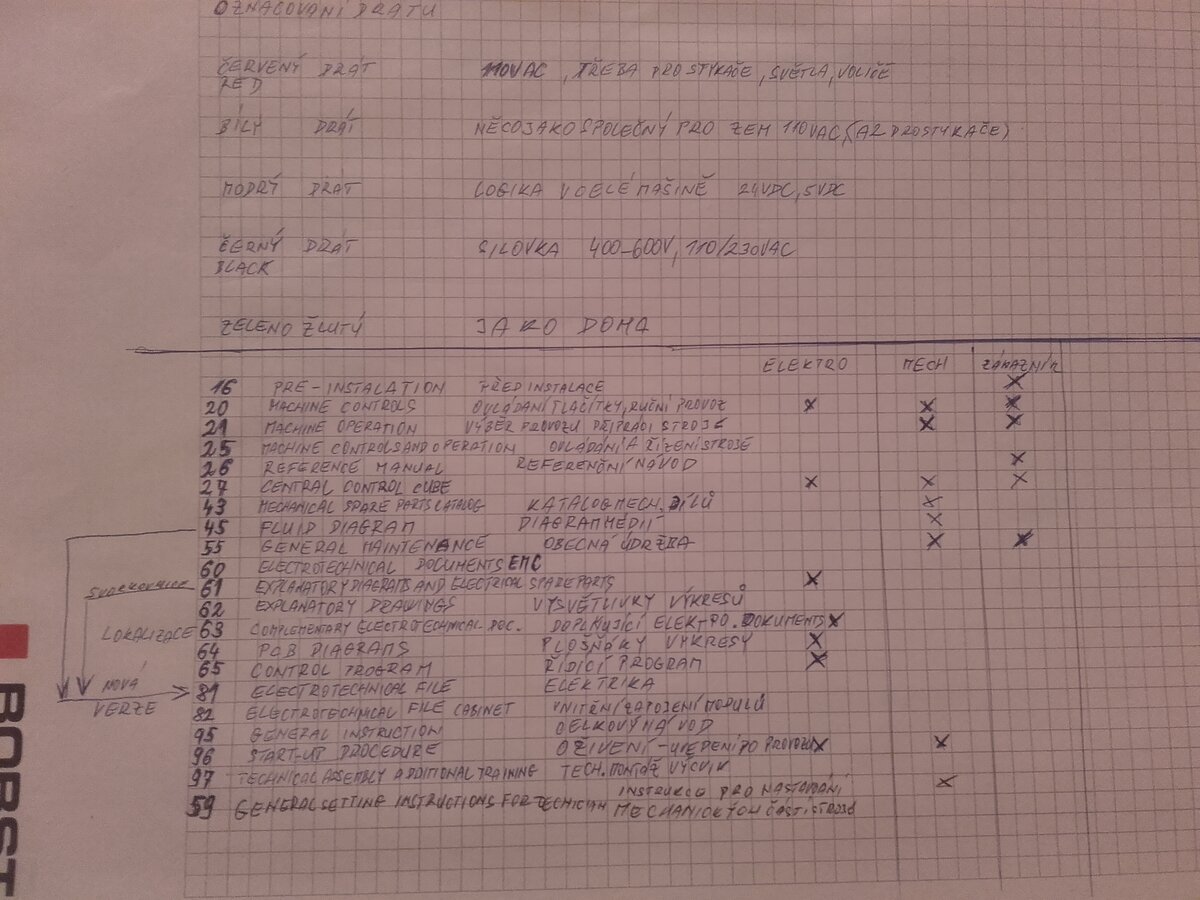 OZNAČOVÁNÍ DRÁTŮ
ČERVENÝ DRÁT 110VAC, TŘEBA PRO STYKAČE, SVĚTLA, VOLIČE
RED
BÍLÝ DRÁT NĚCO JAKO SPOLEČNÝ PRO ZEM 110VAC, (A2 PRO STYKAČE)
MODRÝ DRÁT LOGIKA V CELÉ MAŠINĚ 24VDC, 5VDC
ČERNÝ DRÁT SILOVKA 400-600V, 110/230VAC
BLACK
ZELENO ŽLUTÝ JAKO DOMA
ELEKTRO MECH ZÁKAZNÍK
16 PRE-INSTALATION PŘED INSTALACE X
20 MACHINE CONTROLS OVLÁDÁNÍ TLAČÍTKY, RUČNÍ PROVOZ X X X
21 MACHINE OPERATION VÝBĚR PROVOZU PŘI PRÁCI STROJE X X
25 MACHINE CONTROLS AND OPERATION OVLÁDÁNÍ A ŘÍZENÍ STROJE
26 REFERENCE MANUAL REFERENČNÍ NÁVOD X
27 CENTRAL CONTROL CUBE X X X
43 MECHANICAL SPARE PARTS CATALOG KATALOG MECH. DÍLŮ X
45 FLUID DIAGRAM DIAGRAM MÉDIÍ X
55 GENERAL MAINTENANCE OBECNÁ ÚDRŽBA X X
60 ELECTROTECHNICAL DOCUMENTS EMC
61 EXPLANATORY DIAGRAMS AND ELECTRICAL SPARE PARTS X
62 EXPLANATORY DRAWINGS VYSVĚTLIVKY VÝKRESŮ
LOKALIZACE 63 COMPLEMENTARY ELECTROTECHNICAL DOC. DOPLŇUJÍCÍ ELEKTRO. DOKUMENTS X
64 PCB DIAGRAMS PLOŠŇÁKY VÝKRESY X
65 CONTROL PROGRAM ŘÍDÍCÍ PROGRAM X
NOVÁ
VERZE
81 ELECTROTECHNICAL FILE ELEKTRIKA
82 ELECTROTECHNICAL FILE CABINET VNITŘNÍ ZAPOJENÍ MODULŮ
95 GENERAL INSTRUCTION CELKOVÝ NÁVOD
96 START-UP PROCEDURE OŽIVENÍ - UVEDENÍ DO PROVOZU X X
97 TECHNICAL ASSEMBLY ADDITIONAL TRAINING TECH. MONTÁŽ VÝCVIK
59 GENERAL SETTING INSTRUCTIONS FOR TECHICIAN INSTRUKCE PRO NASTAVÁNÍ X
MECHANICKÝCH ČÁSTÍ STROJŮ
BOBST